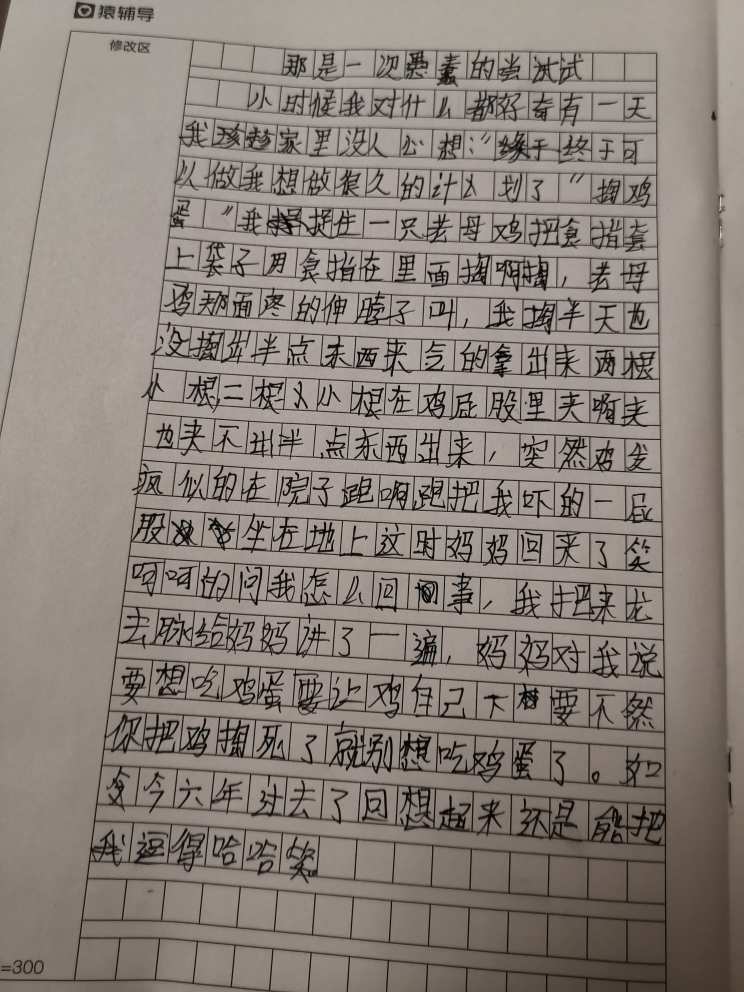 猿辅导
修改区
那是一次愚蠢的尝试试
小时候我对什么都好奇有一天
我趁家里没人心想：“终于可
以做我想做很久的计划了”掏鸡
蛋”我捉住一只老母鸡把食指套
上袋子用食指在里面掏啊掏，老母
鸡那面疼的伸脖子叫，我掏半天也
没掏出半点东西来气的拿出来两根
小棍，二根小棍在鸡屁股里夹啊夹
也夹不出半点东西出来，突然鸡发
疯似的在院子跑啊跑把我吓的一屁
股坐在地上这时妈妈回来了笑
呵呵的问我怎么回事，我把来龙
去脉给妈妈讲了一遍，妈妈对我说
要想吃鸡蛋要让鸡自己下要不然
你把鸡掏死了就别想吃鸡蛋了。如
今六年过去了回想起来还是能把
我逗得哈哈笑。
=300